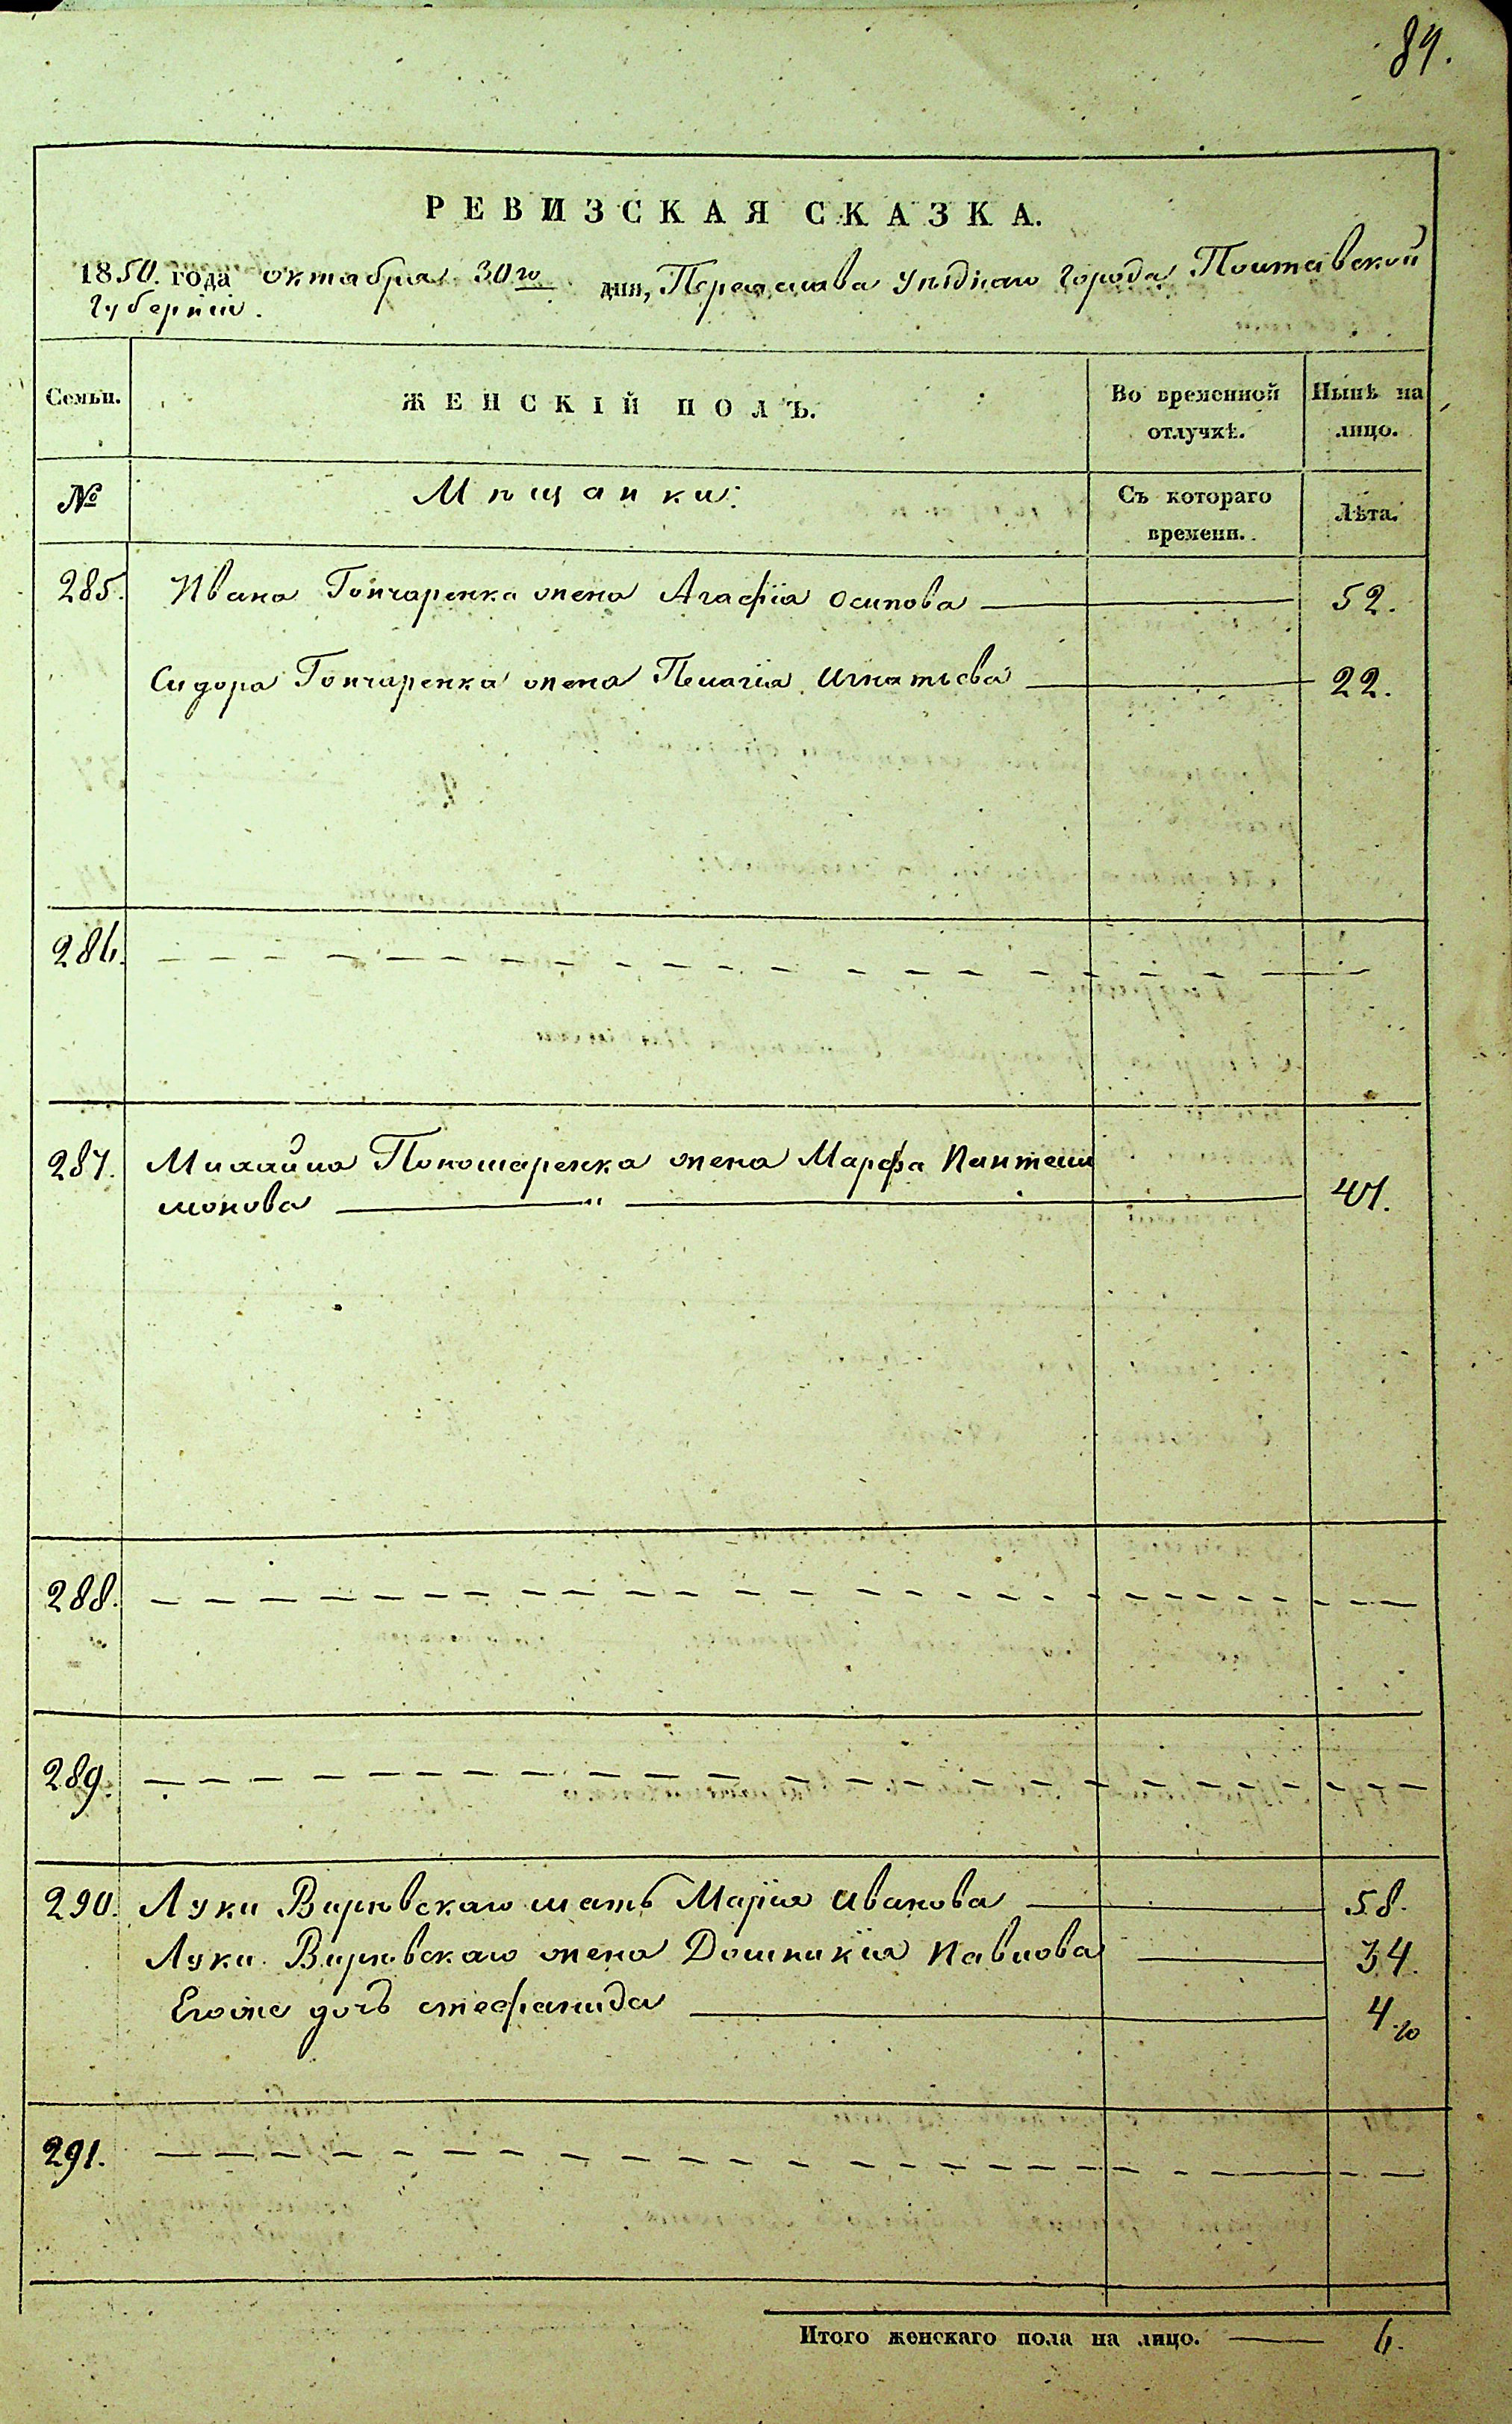 87.
РЕВИЗСКАЯ СКАЗКА.
1850. года октабря 30го дня, Переяслава Уѣзднаго Города Полтавской
Губерніи.
Семьи. ЖЕНСКІЙ ПОЛЪ. Во временной отлучкѣ. Нынѣ на лицо.
№ Мѣщанки: Съ котораго времени. Лѣта.
285. Ивана Гончаренка жена Агафія Осипова — 52.
Сидора Гончаренка жена Пелагія Игнатьева — 22.
286. — — — — — —
287. Михайла Пономаренка жена Марфа Пантели
монова — " — 47.
288. — — — — — —
289. — — — — — —
290. Луки Виржовскаго мать Марія Иванова — 58.
Луки Виржовскаго жена Домникія Павлова — 34.
Егоже дочь стефанида — 4
291. — — — — — —
Итого женскаго пола на лицо. — 6.